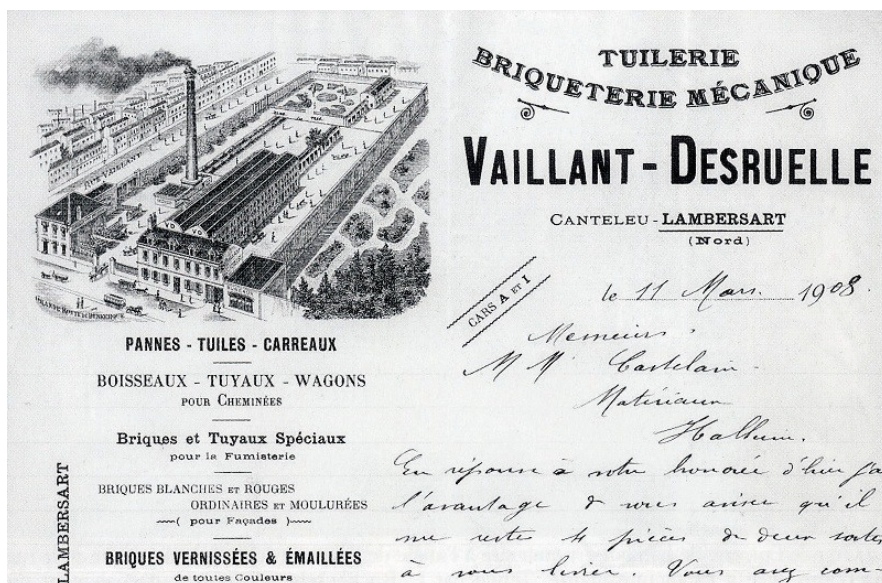 TUILERIE
BRIQUETERIE MÉCANIQUE
VAILLANT - DESRUELLE
CANTELEU - LAMBERSART
(Nord)
CARS A ET I
le 11 Mars 1908.
Messieurs
M M Castelain
Matériaux
Halluin.
En réponse à votre honorée d'hier j'ai
l'avantage de vous aviser qu'il
me reste 4 pièces de deux sortes
à vous livrer. Vous avez com-
RUE VAILLANT
VD VD
PANNES - TUILES - CARREAUX
BOISSEAUX - TUYAUX - WAGONS
POUR CHEMINÉES
Briques et Tuyaux Spéciaux
pour la Fumisterie
BRIQUES BLANCHES ET ROUGES
ORDINAIRES ET MOULURÉES
( pour Façades )
BRIQUES VERNISSÉES & ÉMAILLÉES
de toutes Couleurs
LAMBERSART